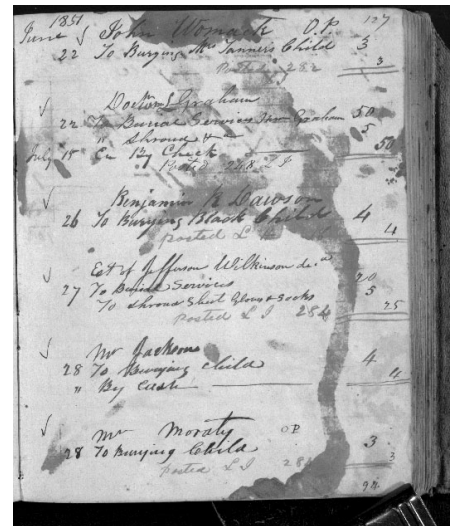 1851
127
June John Womack O.P.
22 To Burying Mr Tanners Child 3
Posted 282 3
Doctor Graham
22 To Burial Services Graham 50
" Shroud & 5
July 15 Cr By Check 50
Posted 268 L I
Benjamin R Dawson
26 To Burying Black Child 4
posted L 4
Est of Jefferson Wilkinson de.d
27 To Burial Services 20
To Shroud Sheet Gloves & Socks 5
Posted L I 284 25
Mr Jackson
28 To Burying Child 4
" By Cash 4
Mr Moraty OP
28 To Burying Child 3
posted L I 3